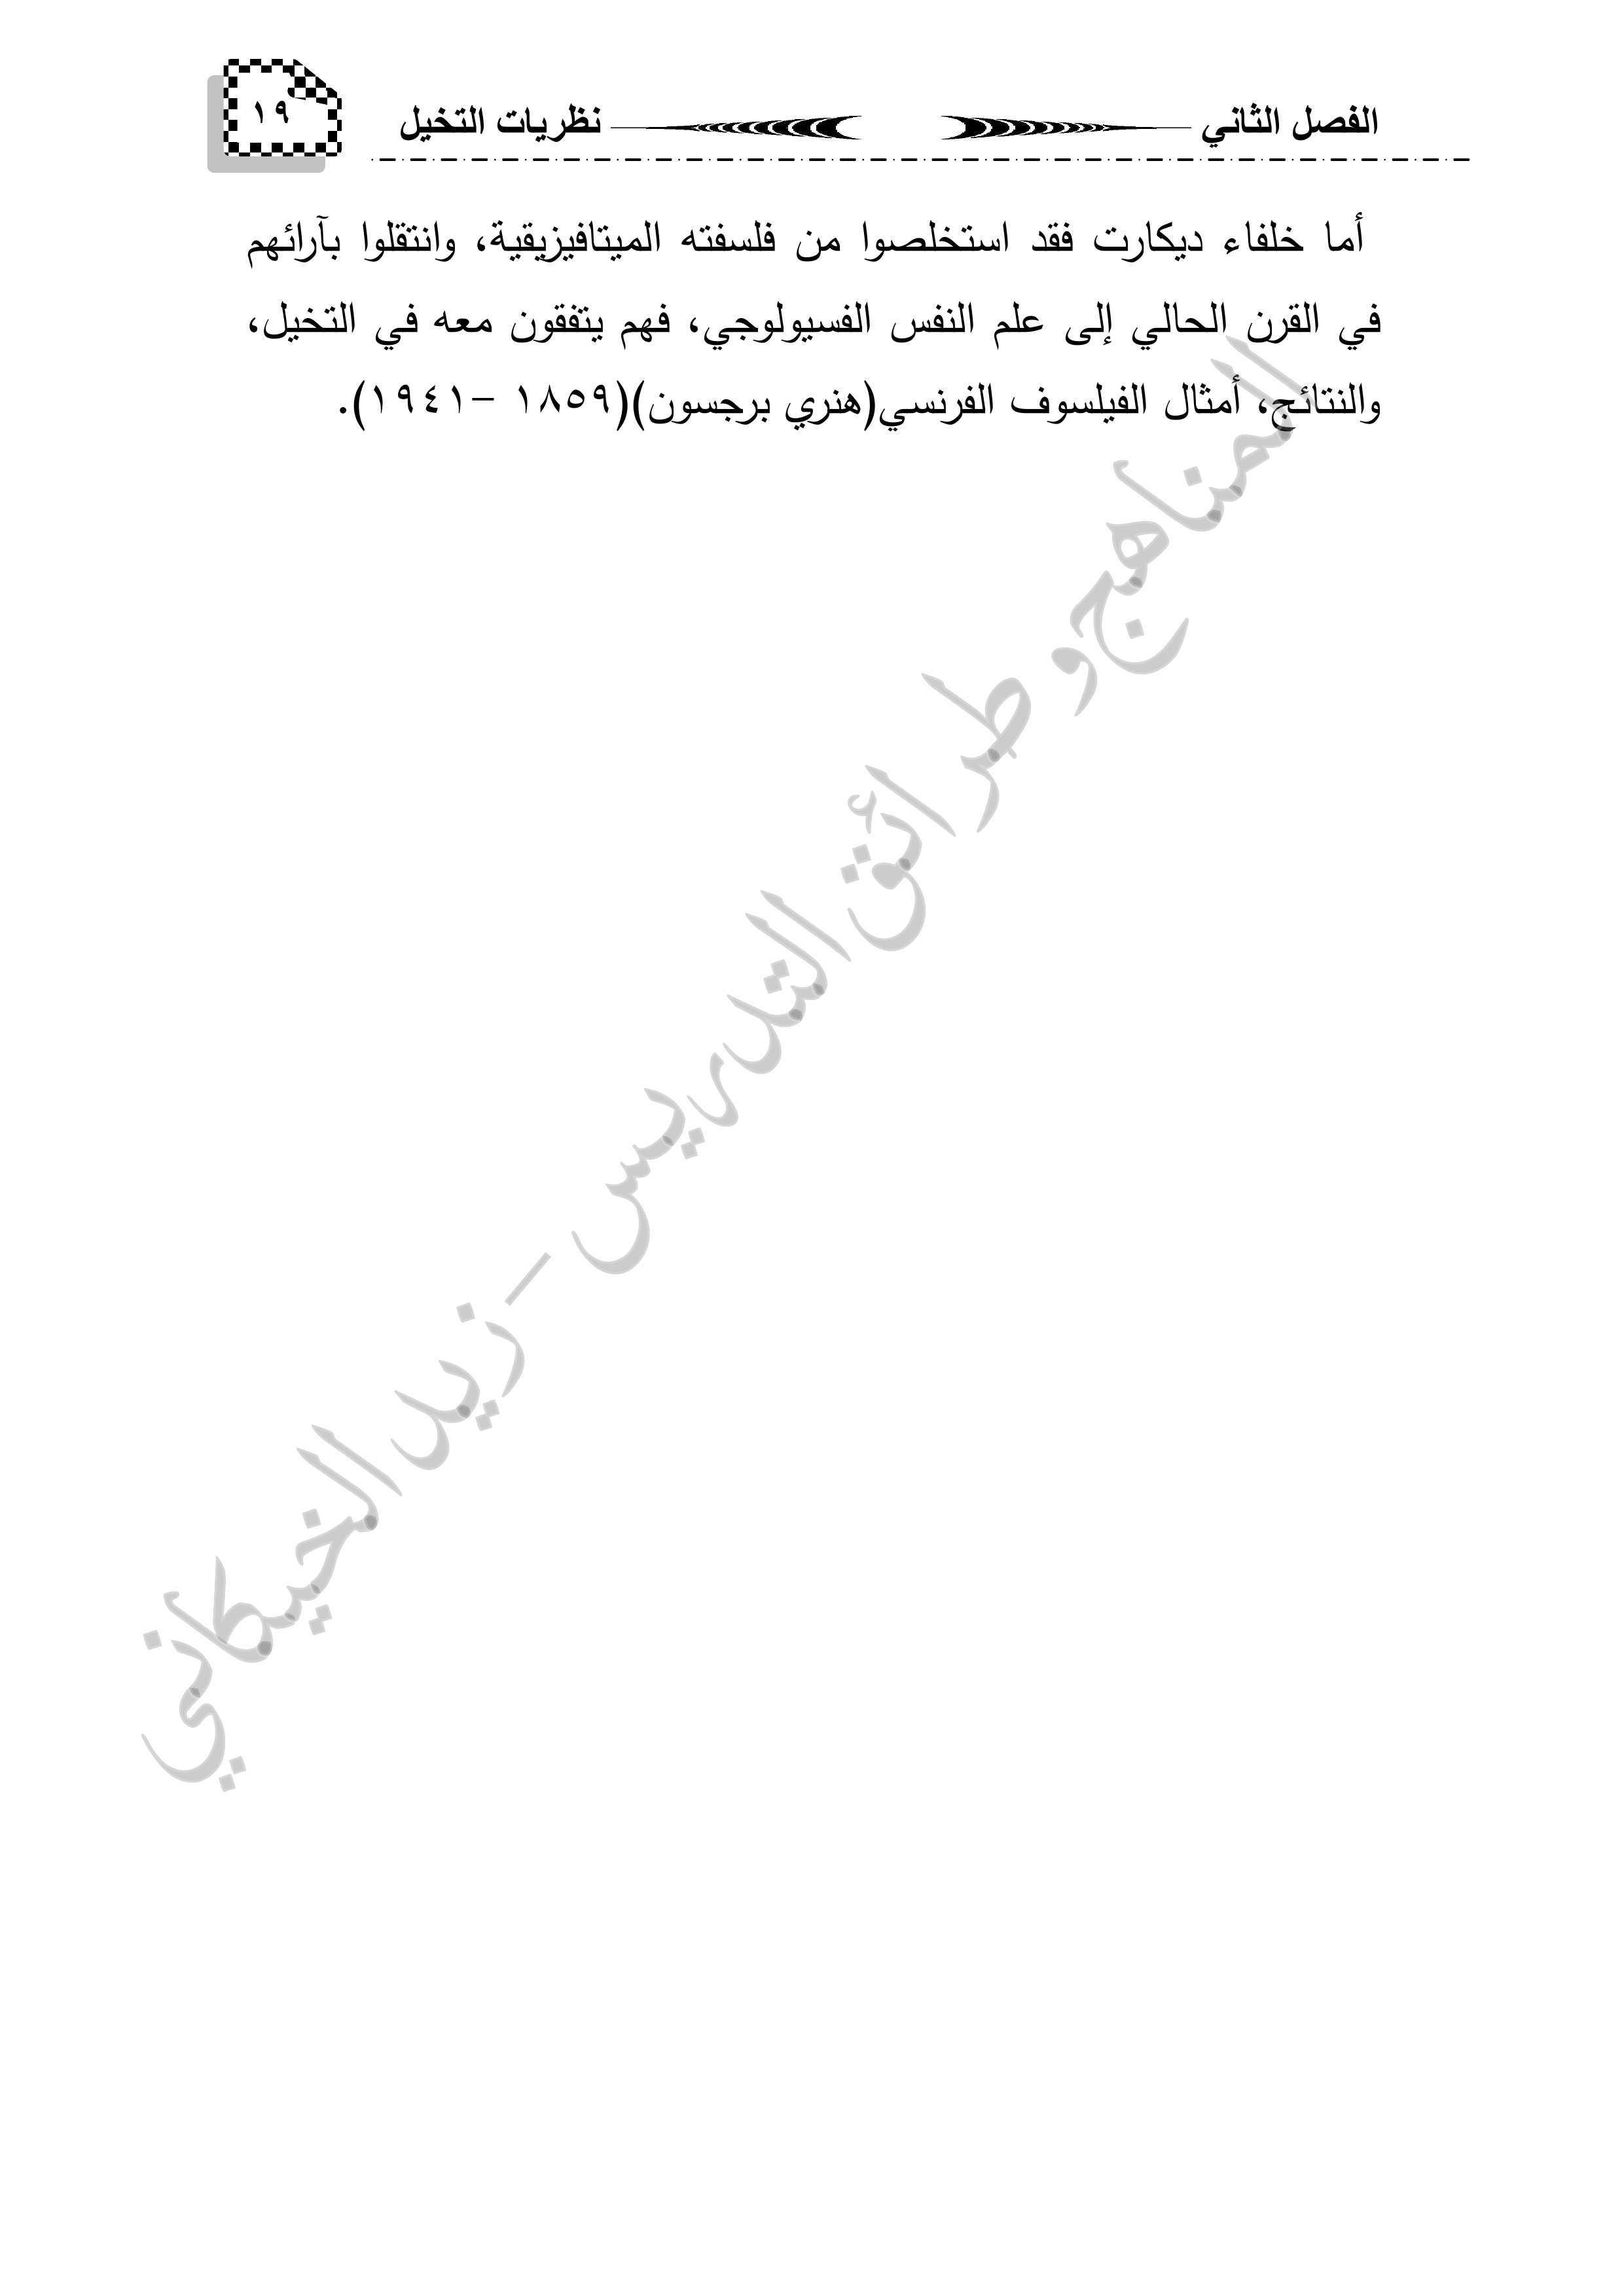 الفصل الثاني نظريات التخيل ١٩
أما خلفاء ديكارت فقد استخلصوا من فلسفته الميتافيزيقية، وانتقلوا بآرائهم
في القرن الحالي إلى علم النفس الفسيولوجي، فهم يتفقون معه في التخيل،
والنتائج، أمثال الفيلسوف الفرنسي(هنري برجسون)(١٨٥٩ – ١٩٤١).
المناهج وطرائق التدريس - زيد الخيكاني